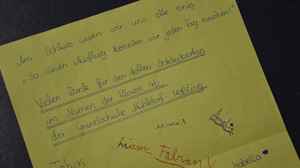 Am Schluss waren wir uns alle einig
"So einen Ausflug könnten wir jeden Tag machen!"
Vielen Dank für den tollen Entdeckertag
im Namen der Klasse 4b
der Grundschule
Liam Fabian
Isabella
Tobias